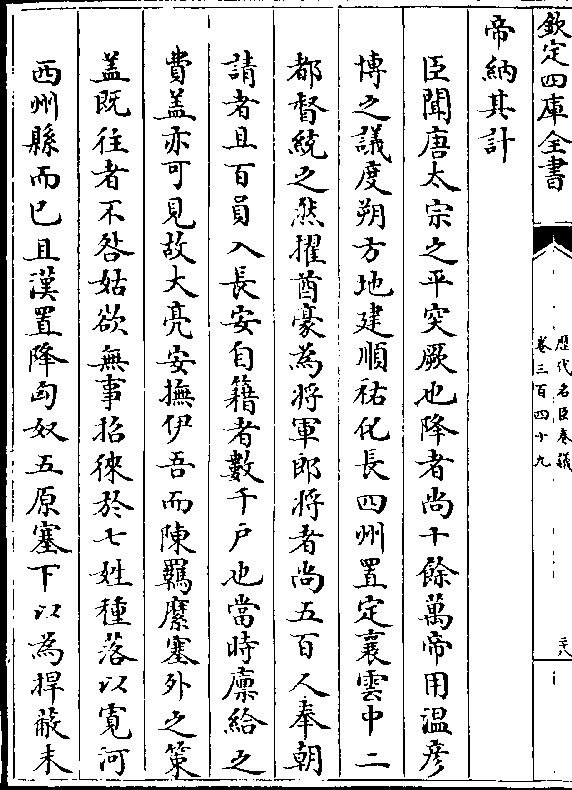 欽定四庫全書
歷代名臣奏議
卷三百四十九
二八
帝納其計
臣聞唐太宗之平突厥也降者尚十餘萬帝用溫彥
博之議度朔方地建順祐化長四州置定襄雲中二
都督統之然擢酋豪為將軍郎將者尚五百人奉朝
請者且百員入長安自籍者數千户也當時廩給之
費蓋亦可見故大亮安撫伊吾而陳羈縻塞外之策
蓋既往者不咎姑欲無事招徠於七姓種落以寛河
西州縣而已且漢置降匈奴五原塞下以為捍蔽未